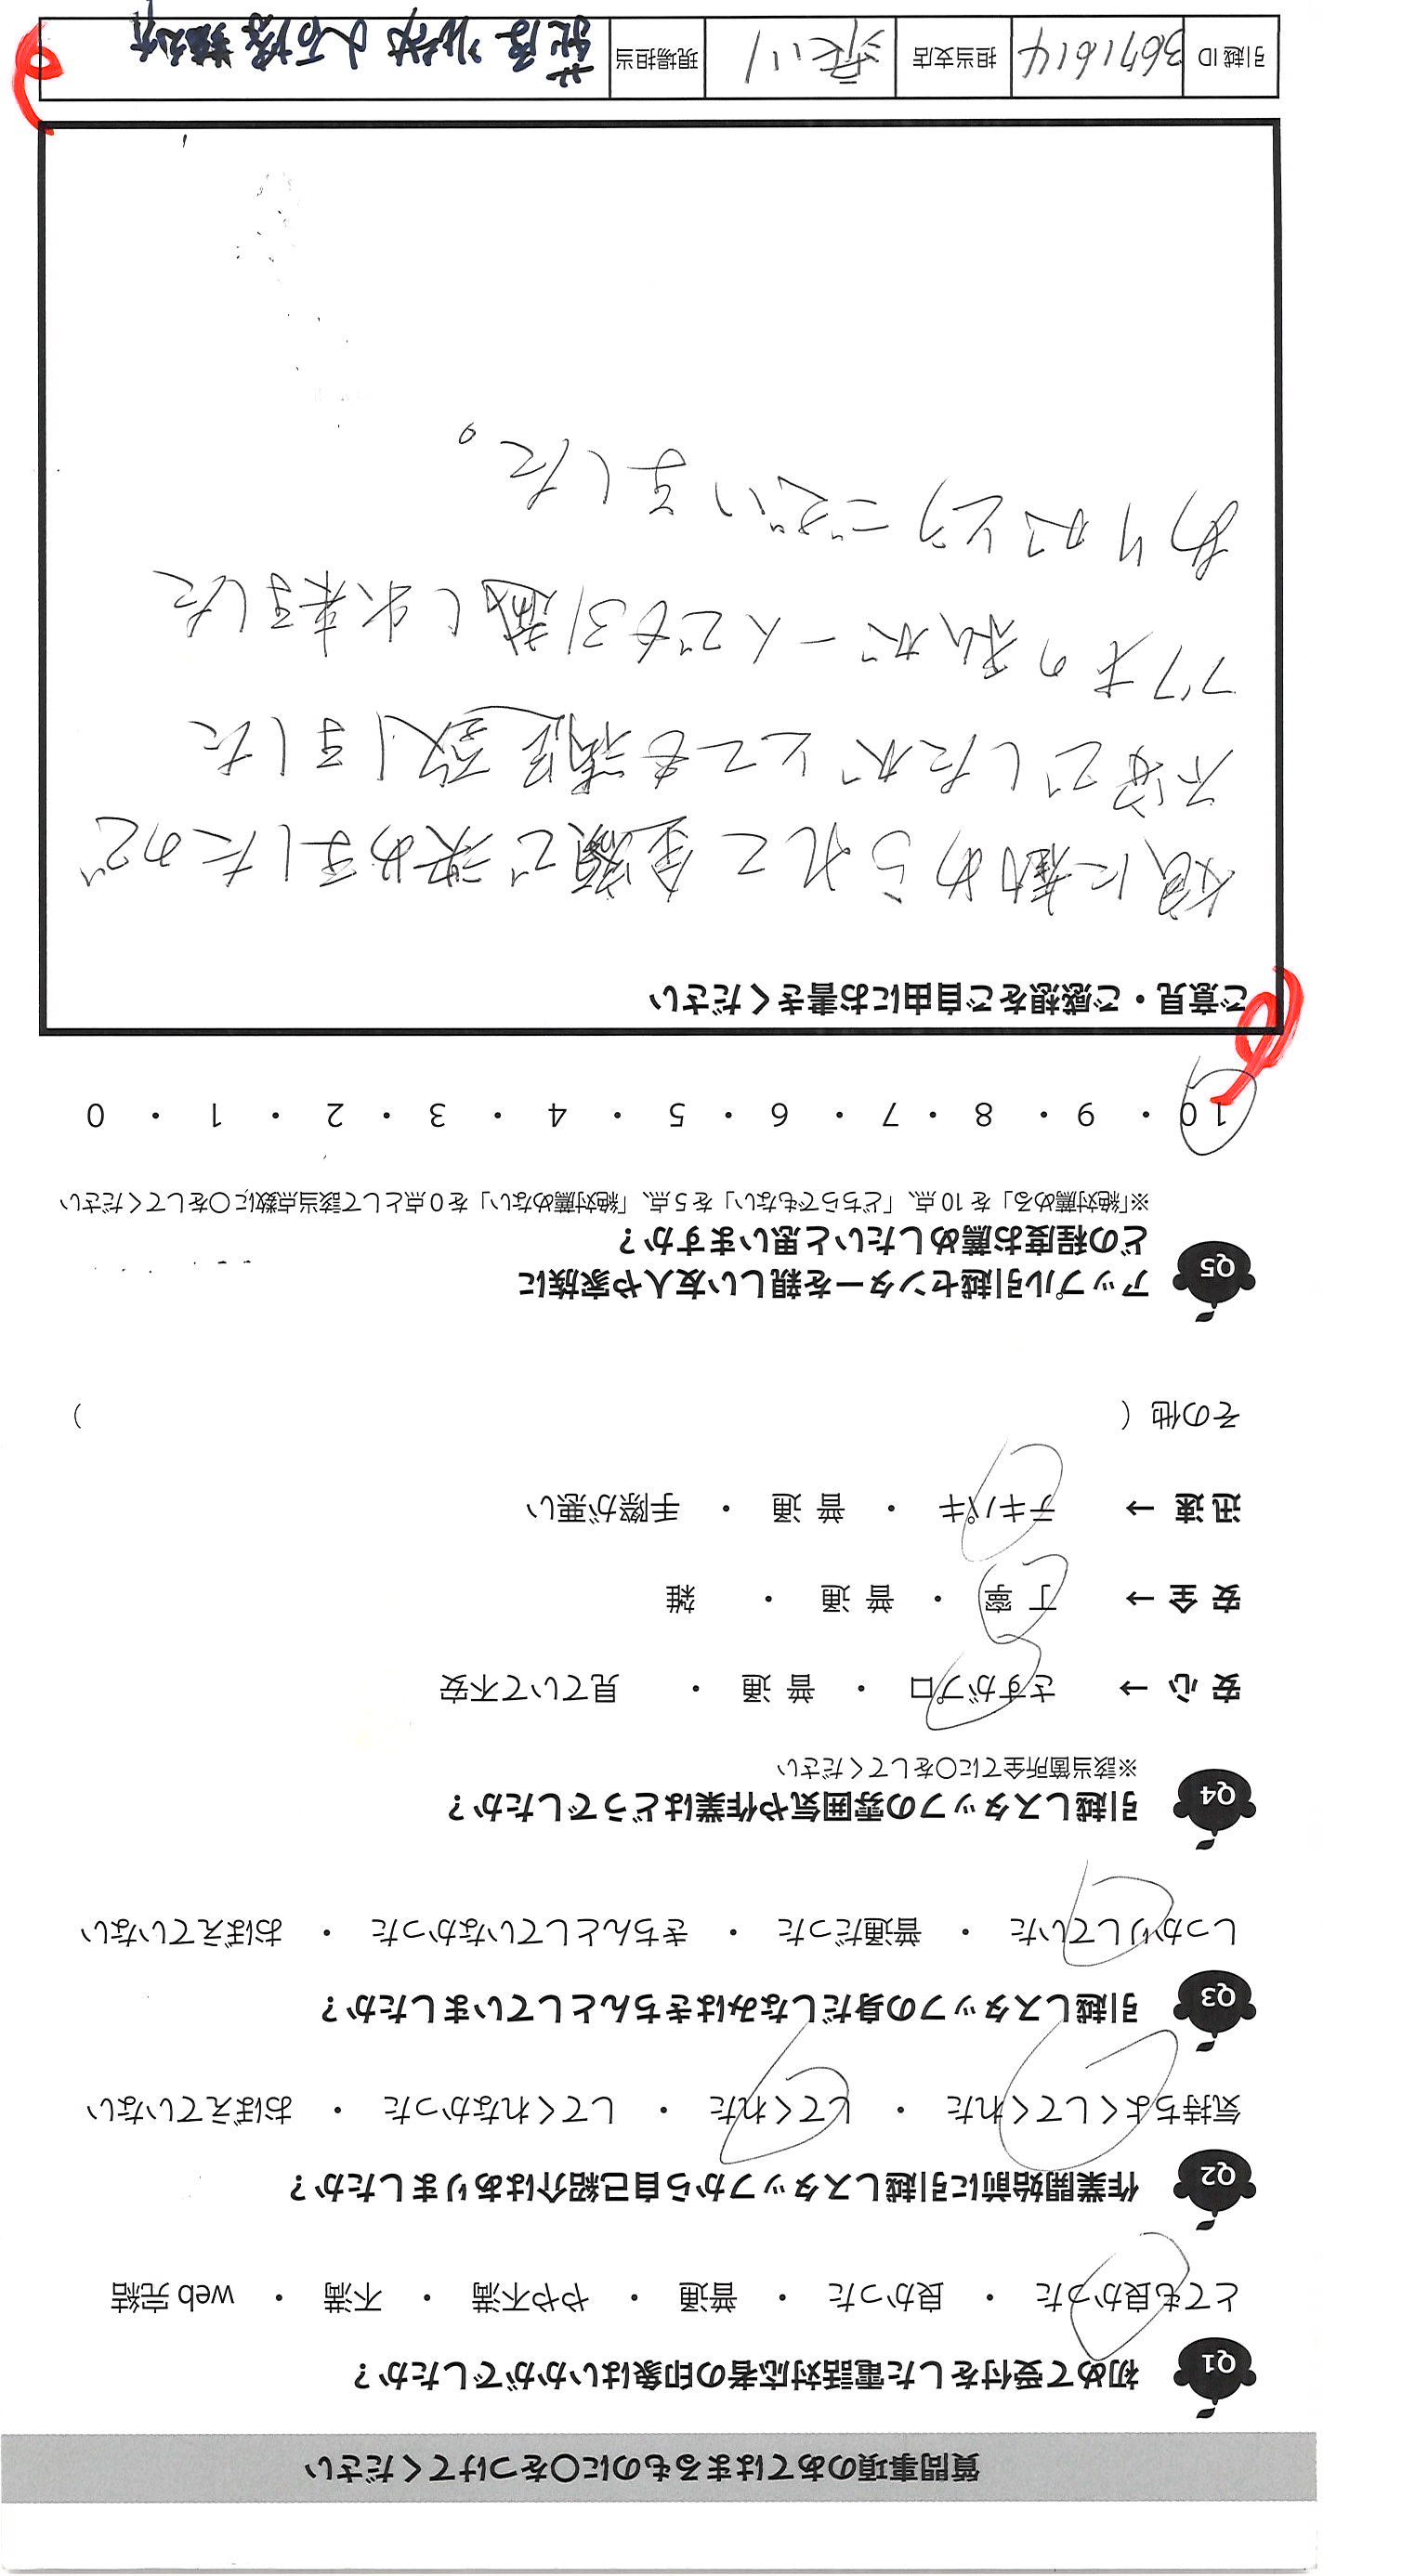 質問事項のあてはまるものに〇をつけてください
Q1 初めて受付をした電話対応者の印象はいかがでしたか？
とても良かった ・ 良かった ・ 普通 ・ やや不満 ・ 不満 ・ web 完結
Q2 作業開始前に引越しスタッフから自己紹介はありましたか？
気持ちよくしてくれた ・ してくれた ・ してくれなかった ・ おぼえていない
Q3 引越しスタッフの身だしなみはきちんとしていましたか？
しっかりしていた ・ 普通だった ・ きちんとしていなかった ・ おぼえていない
Q4 引越しスタッフの雰囲気や作業はどうでしたか？
※該当箇所全てに〇をしてください
安 心 → さすがプロ ・ 普 通 ・ 見ていて不安
安 全 → 丁 寧 ・ 普 通 ・ 雑
迅 速 → テキパキ ・ 普 通 ・ 手際が悪い
その他（ ）
Q5 アップル引越センターを親しい友人や家族に
どの程度お薦めしたいと思いますか？
※「絶対薦める」を 10 点、「どちらでもない」を 5 点、「絶対薦めない」を 0 点として該当点数に〇をしてください
10 ・ 9 ・ 8 ・ 7 ・ 6 ・ 5 ・ 4 ・ 3 ・ 2 ・ 1 ・ 0
ご意見・ご感想をご自由にお書きください
娘に勧められて金額で決めましたので
不安でしたがとても満足致しました
アラ才の私が一人でも引越し出来ました
ありがとうございました。
引越 ID 3671614 担当支店 現場担当